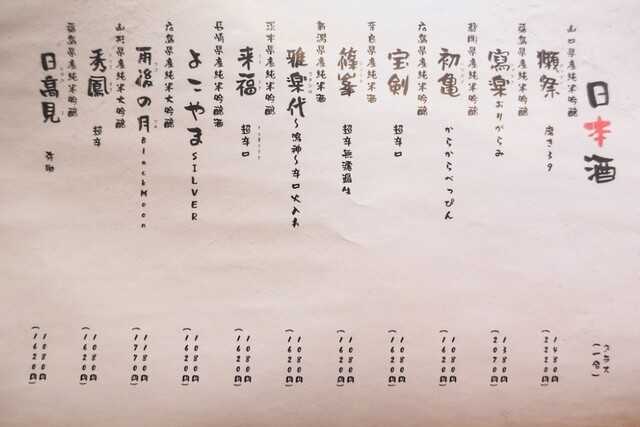 日本酒
グラス
(一合)
山口県産純米吟醸
獺祭 磨き39
1480円
(2220円)
福島県産純米吟醸
寫楽 おりがらみ
1380円
(2070円)
静岡県産純米吟醸
初亀 からからべっぴん
1080円
(1620円)
広島県産純米吟醸
宝剣 超辛口
1080円
(1620円)
奈良県産純米酒
篠峯 超辛無濾過生
1080円
(1620円)
新潟県産純米酒
雅楽代〜鳴神〜辛口火入れ
1080円
(1620円)
茨木県産純米吟醸
来福 超辛口
1080円
(1620円)
長崎県産純米吟醸
よこやまSILVER
1080円
(1620円)
広島県産純米大吟醸
雨後の月BlackMoon
1180円
(1770円)
山形県産純米大吟醸
秀鳳 超辛
1080円
(1620円)
福島県産純米吟醸
日高見 弥助
1080円
(1620円)